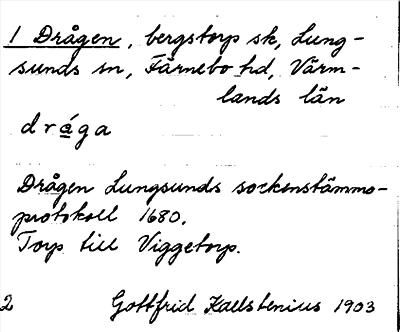 1 Drågen, bergstorp sk, Lung-
sunds sn, Färnebo hd, Värm-
lands län
dråga
Drågen Lungsunds sockenstämmo-
protokoll 1680.
Torp till Viggetorp.
2 Gottfrid Kallstenius 1903